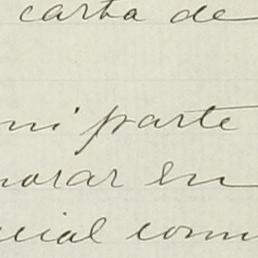 carta de
mi parte
morar en
cial com